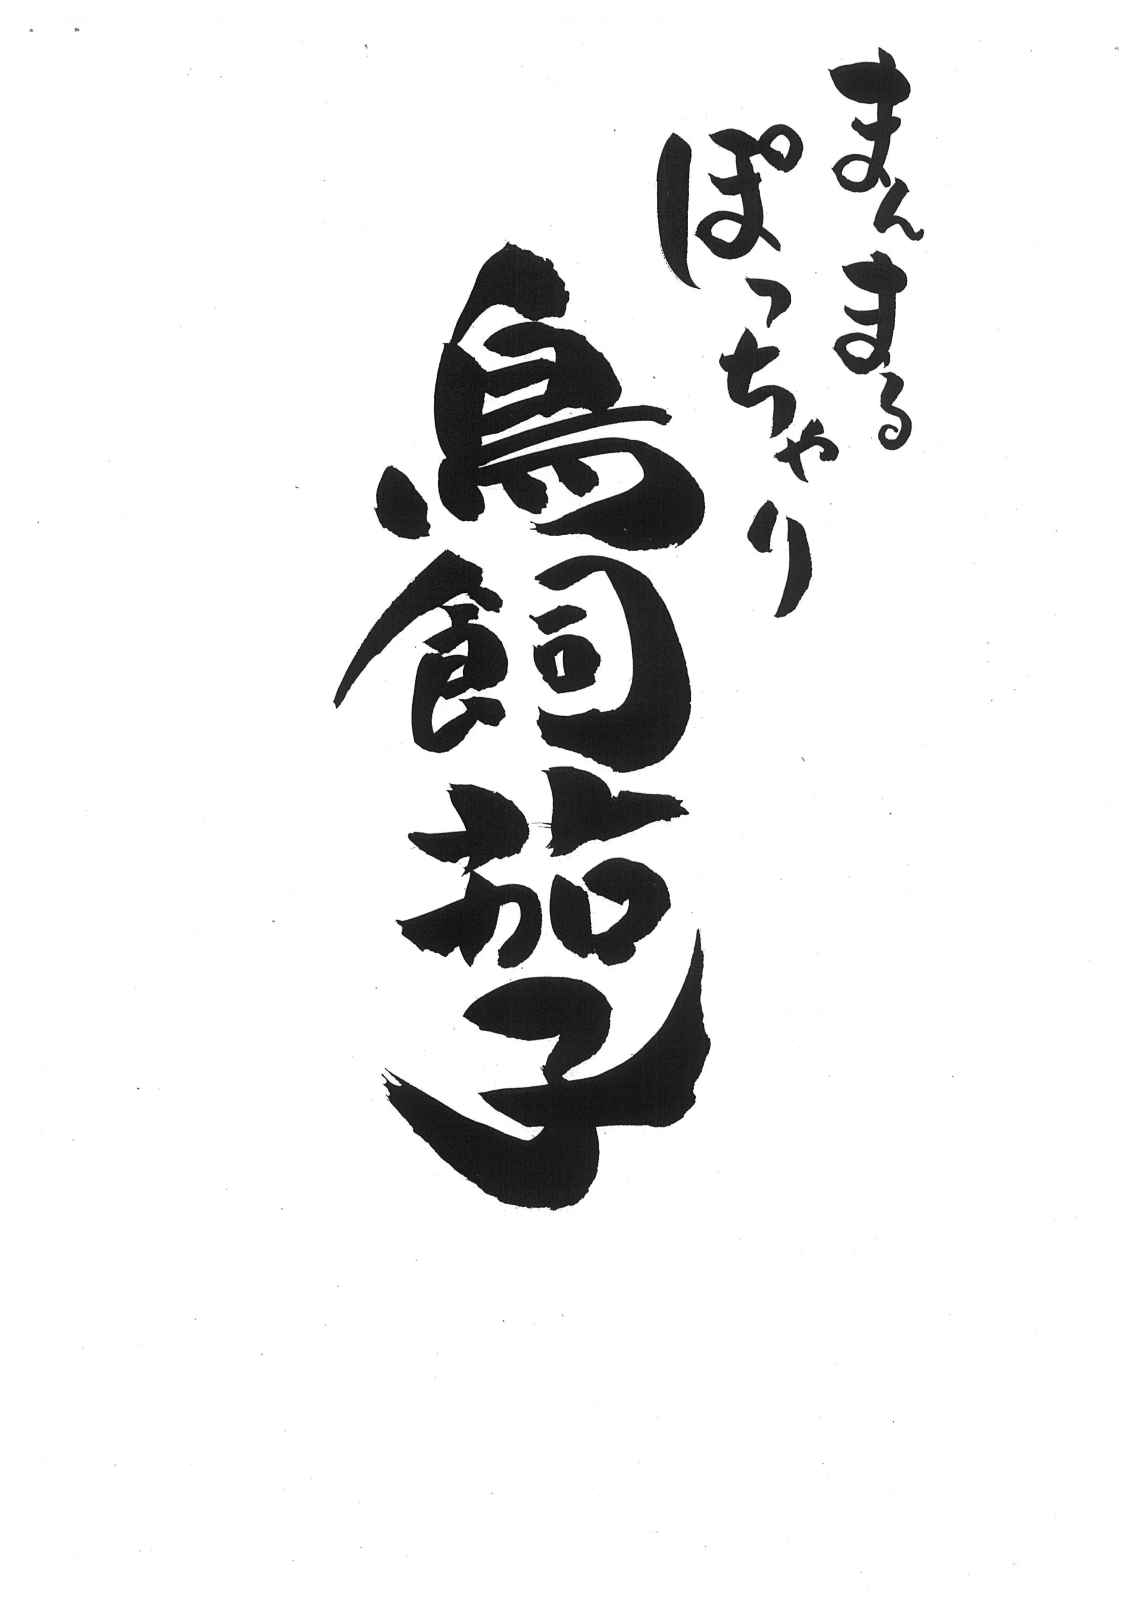 まんまる
ぽっちゃり
鳥飼茄子